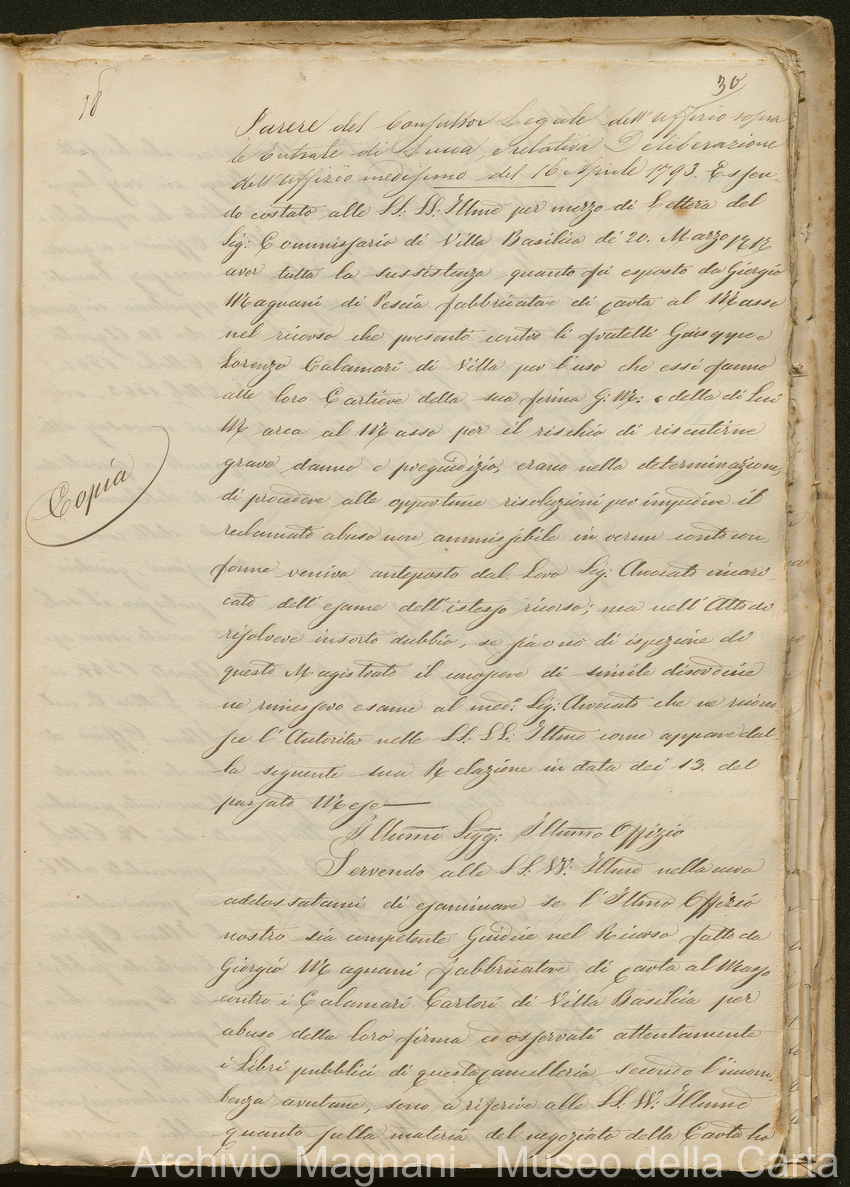 18
30
Parere del Consultor Legale dell'Uffizio sopra
le Entrate di Lucca, e relativa Deliberazione
dell'Uffizio medesimo del 16 Aprile 1793. Essen-
do costato alle LL: SS: Illme per mezzo di Lettera del
Sig: Commissario di Villa Basilica de' 20. Marzo
aver tutta la sussistenza quanto fu esposto da Giorgio
Magnani di Pescia fabbricatore di Carta al Masso
nel ricorso che presentò contro li fratelli Guiseppe e
Lorenzo Calamari di Villa per l'uso che essi fanno
alle loro Cartiere della sua firma G: M: e della di Lui
Marca al Masso per il rischio di risentirne
grave danno e pregiudizio, erano nella determinazione,
di procedere alle opportune risoluzioni per impedire il
reclamato abuso non ammissibile in verun conto con-
forme veniva anteposto dal Loro Sig: Avvocato incari-
cato dell'esame dell'istesso ricorso; ma nell'Atto di
risolvere insorto dubbio, se sia o nò di ispezione di
questo Magistrato il conoscere di simile disordine
ne rimessero esame al medo: Sig: Avvocato che ne ricono-
sce l'Autorità nelle LL: SS: Illme come appare dal-
la seguente sua Relazione in data dei 13. del
passato Mese
Illumi Sigg: Illumo Offizio
Servendo alle SS: VV: Illme nella cura
addossatami di esaminare se l'Illmo Offizio
nostro sia competente Giudice nel Ricorso fatto da
Giorgio Magnani fabbricatore di Carta al Masso
contro i Calamari Cartori di Villa Basilica per
abuso della loro firma ed osservati attentamente
i Libri pubblici di questa Cancelleria secondo l'incom-
benza avutane, sono a riferire alle SS: VV: Illume
quanto sulla materia del negoziato della Carta ho
Copia
Archivio Magnani - Museo della Carta